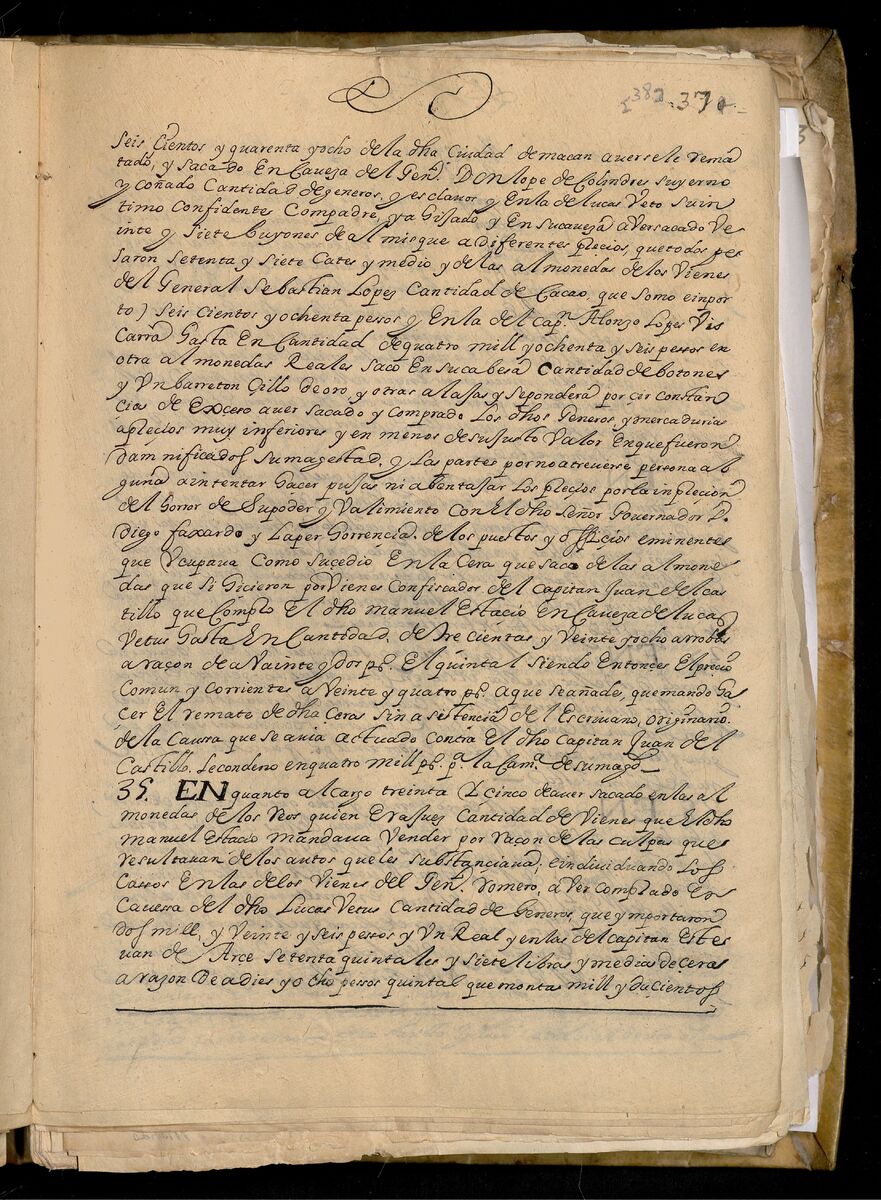 382 370
Seis Cientos y quarenta yocho de la dha Ciudad de macan auersele rema
tado, y sacado En Caueza del Genl. Don lope de Colindres suyerno
y coñado Cantidad de generos, y esclauos y Enla de lucas Veto su in
timo Confidentes Compadre, ya Gijado, y En su caueza aver sacado Ve
inte y Siete buyones de almisque a diferentes plecios, que todos pe
saron setenta y siete Cates y medio y de las almonedas de los Vienes
del General Sebastian Lopez Cantidad de Cacao, que somo einpor
to) seis Cientos yochenta pessos y Enla del capn. Alonzo Lopes Vis
carra Gasta En Cantidad de quatro mill yochenta y seis pessos en
otra almonedas Reales saco En su cabesa Cantidad de botones
y Un barreton çillo de oro, y otras alajas y se pondera por cir constan
cias de Exceso auer sacado y comprado Los dhos Generos y mercadurias
a plecios muy inferiores y en menos de su justo Valor En que fueron
damnificados su magestad, y Las partes por no atreuerse persona al
guna a intentar Gacer pujas ni abentajar Los plecios por la inplecion
del Gorror de su poder y Valimiento con El dho señor Gouernador D.
Diego faxardo y La per Gorrencia de los puestos y officios eminentes
que Ucupaua Como sucedio En la Cera que saco de las almone
das que si Gicieron por Vienes Confiscados del capitan Juan del cas
tillo que Complo El dho manuel Estacio En Caueza de lucas
Vetus Gasta En Cantidad de tre cientas y Veinte yocho arrobas
a raçon de a Vainte y dos ps. El quintal siendo Entonces El precio
Comun y corrientes a Veinte y quatro ps. a que se añades, que mando Ga
cer El remate de dha Ceras sin asistencia del Escriuano, originario
de la Caussa que se auia actuado contra El dho Capitan Juan del
Castillo. Se condeno en quatro mill ps. pa. la Cama. de su magd.
35. EN quanto al cargo treinta y Cinco de auer sacado en las al
monedas de los reos quien Era juez Cantidad de Vienes que El dho
manuel Estacio mandaua Vender por raçon de las culpas que
resultauan de los autos que les substançiaua; e individuando Los
Cassos En las de los Vienes del Genl. romero, a Ver complado En
Cauessa del dho Lucas Vetus Cantidad de Generos, que ymportaron
dos mill, y Veinte y seis pessos y Un Real y en las del capitan Este
uan de Arce setenta quintales y siete libras y medias de ceras
a razon De a dies yocho pessos quintal que montas mill y ducientos